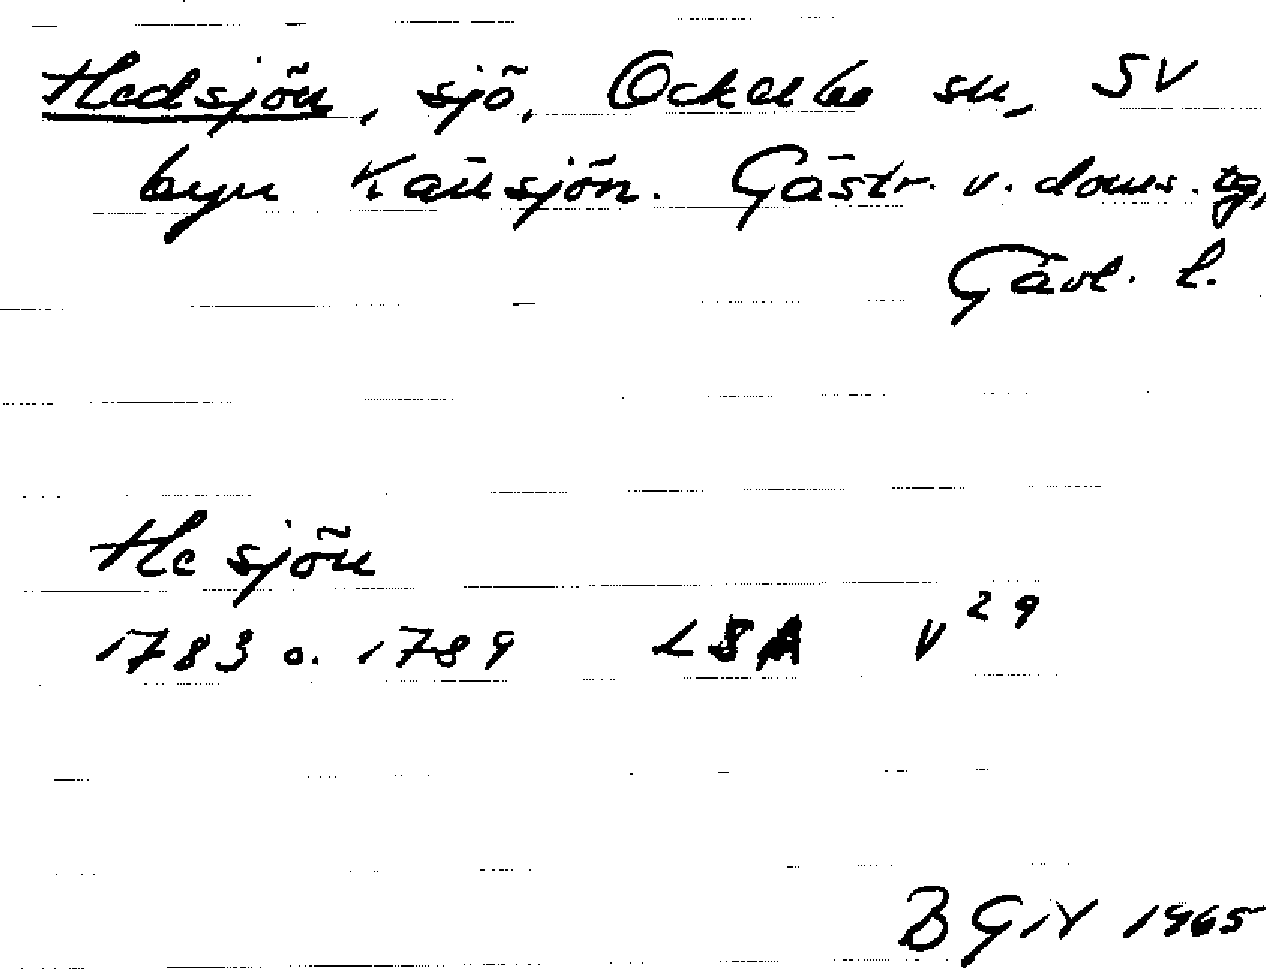 Hedsjön, sjö, Ockelbo sn, SV
byn Kallsjön. Gästr. v. doms. tg,
Gävl. l.
Hesjön
1783 o. 1789 LSA V 29
1965